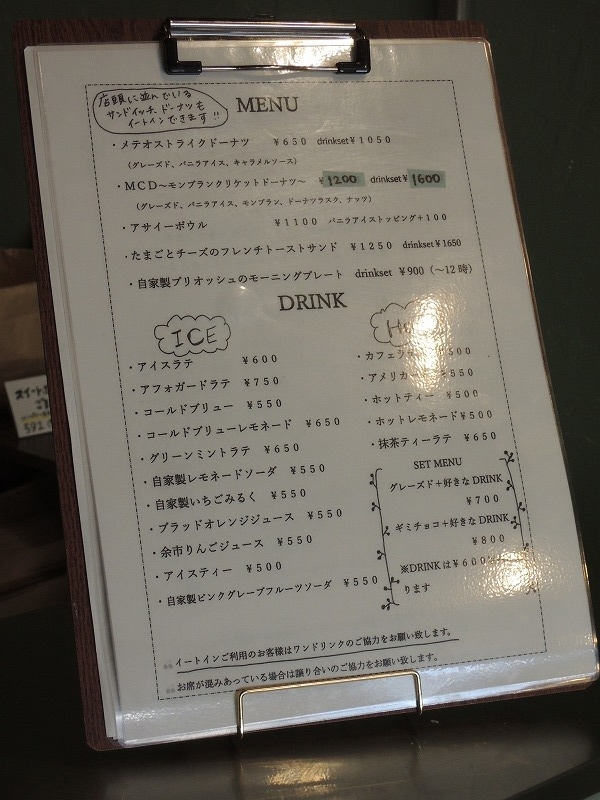 店頭に並んでいる
サンドイッチ、ドーナツも
イートインできます!!
MENU
・メテオストライクドーナツ ¥650 drinkset ¥1050
(グレーズド、バニラアイス、キャラメルソース)
・MCD～モンブランクリケットドーナツ～ ¥1200 drinkset¥1600
(グレーズド、バニラアイス、モンブラン、ドーナツラスク、ナッツ)
・アサイーボウル ¥1100 バニラアイストッピング+100
・たまごとチーズのフレンチトーストサンド ¥1250 drinkset¥1650
・自家製ブリオッシュのモーニングプレート drinkset ¥900(～12時)
DRINK
ICE
・アイスラテ ¥600
・アフォガードラテ ¥750
・コールドブリュー ¥550
・コールドブリューレモネード ¥650
・グリーンミントラテ ¥650
・自家製レモネードソーダ ¥550
・自家製いちごみるく ¥550
・ブラッドオレンジジュース ¥550
・余市りんごジュース ¥550
・アイスティー ¥500
・自家製ピンクグレープフルーツソーダ ¥550
・カフェ 500
・アメリカ ¥550
・ホットティー ¥500
・ホットレモネード¥500
・抹茶ティーラテ ¥650
SET MENU
グレーズド+好きなDRINK
¥700
ギミチョコ+好きなDRINK
¥800
※DRINKは¥600
ります
イートインご利用のお客様はワンドリンクのご協力をお願い致します。
お席が混みあっている場合は譲り合いのご協力をお願い致します。